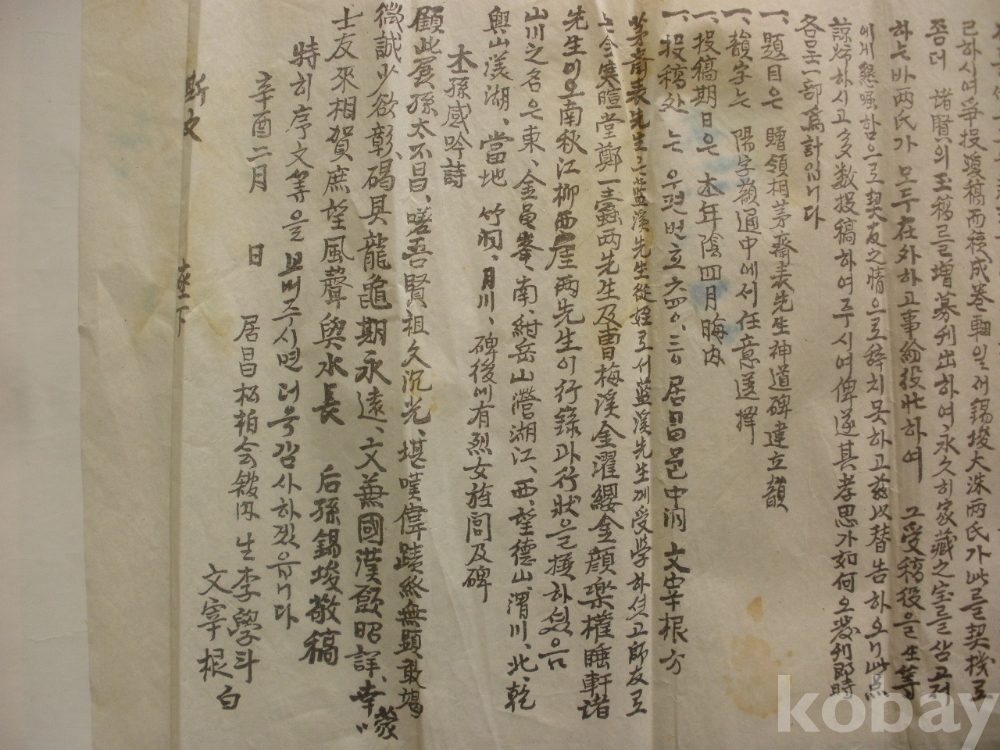 己하시여爭投瓊稿而積成卷軸일새錫埈大洙兩氏가此를契機로
좀더 諸賢의玉稿를增募刊出하여、永久히家藏之宝를삼고저
하는바兩氏가 모두在外하고事務役壯하여 그受稿役을生等
에게懇囑함으로契友之情으로辞치못하고玆以替告하오니此点
諒燭하시고多数投稿하여주시여俾遂其孝思가如何오發刊即時
各呈一部爲計입니다
一、題目은 贈領相茅齋表先生神道碑建立韻
一、韻字는 陽字韻通中에서任意选擇
一、投稿期日은 本年陰四月晦内
一、投稿处 는 우편번호六四〇、三〇 居昌邑中洞 文宰根方
茅齋表先生은藍溪先生從姪로서藍溪先生께受學하셧고師友로
는金寒暄堂鄭一蠹兩先生及曺梅溪金濯纓金顔樂權睡軒諸
先生이오南秋江柳西厓两先生이行錄과行狀을撰하셨음
山川之名은東、金龜峯、南、紺岳山瀯湖江、西、望德山、渭川、北、乾
興山漾湖、當地 竹洞、月川、碑後에有烈女旌閭及碑
本孫感吟詩
顧此孱孫太不昌、嗟吾賢祖久沉光、堪嘆偉蹟終無顯敢竭
微誠少欲彰、碣具龍龜期永遠、文兼國漢飮昭詳、幸蒙
士友來相賀庶望風聲與水長 后孫錫埈敬稿
特히序文等을보내주시면더욱감사하겠읍니다
辛酉二月 日 居昌松柏会舘内 生李學斗
文宰根 白
斯文 座下
kobay